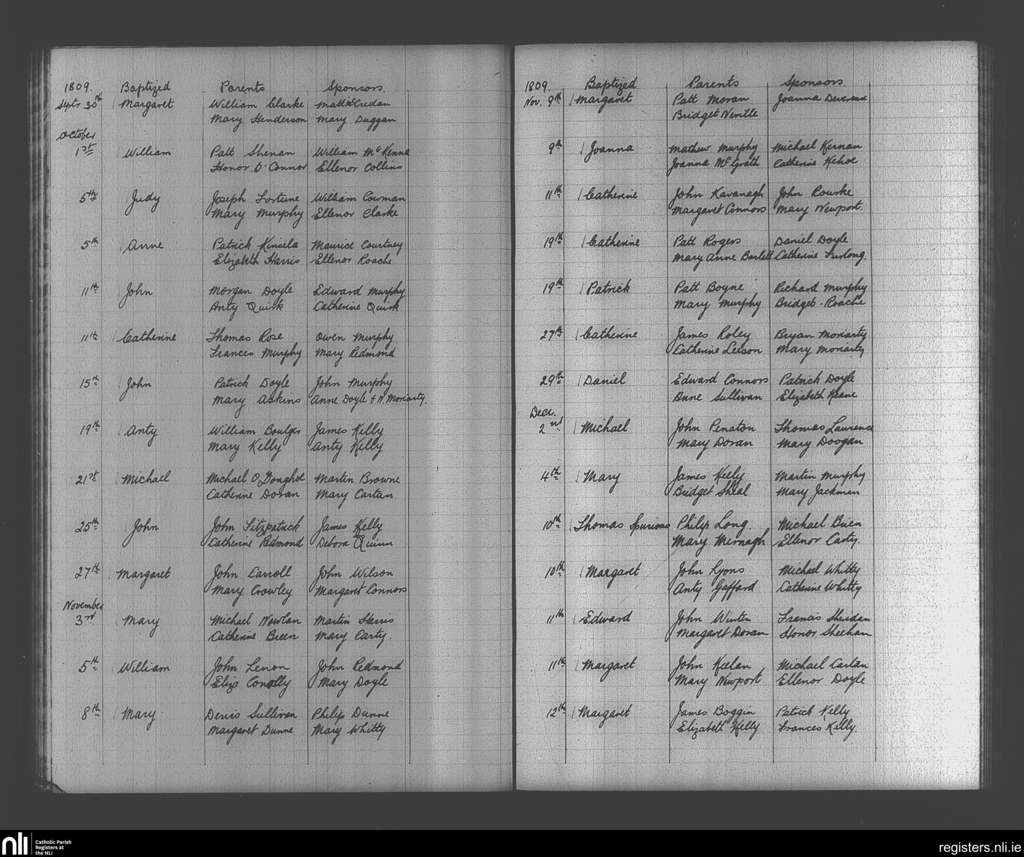 1809. Baptized Parents Sponsors.
Septr 30th Margaret William Clarke Matt Credan
Mary Henderson Mary Duggan
October
1st William Patt Shenan William McKenna
Honor O'Connor Ellenor Collins
5th Judy Joseph Fortune William Cowman
Mary Murphy Ellenor Clarke
5th Anne Patrick Kinsela Maurice Courtney
Elizabeth Harris Ellenor Roache
11th John Morgan Doyle Edward Murphy
Anty Quirk Catherine Quirk
11th Catherine Thomas Rose Owen Murphy
Frances Murphy Mary Redmond
15th John Patrick Doyle John Murphy
Mary Askins Anne Doyle & N. Moriarty.
19th Anty William Boulger James Kelly
Mary Kelly Anty Kelly
21st Michael Michael O'Donghol Martin Browne
Catherine Doran Mary Cartan
25th John John Fitzpatrick James Kelly
Catherine Redmond Debora Quinn
27th Margaret John Carroll John Wilson
Mary Crowley Margaret Connors
November
3rd Mary Michael Nowlan Martin Harris
Catherine Breen Mary Carty.
5th William John Lenon John Redmond
Eliza Conolly Mary Doyle
8th Mary Denis Sullivan Philip Dunne
Margaret Dunne Mary Whitty
1809. Baptized Parents Sponsors.
Nov. 9th Margaret Patt Moran Joanna Devereux
Bridget Neville
9th Joanna Mathew Murphy Michael Kernan
Joanna McGrath Catherine Kehoe
11th Catherine John Kavanagh John Rourke
Margaret Connors Mary Newport.
19th Catherine Patt Rogers Daniel Doyle
Mary Anne Bartlett Catherine Furlong.
19th Patrick Patt Boyne Richard Murphy
Mary Murphy Bridget Roache
27th Catherine James Roley Bryan Moriarty
Catherine Leeson Mary Moriarty
29th Daniel Edward Connors Patrick Doyle
Anne Sullivan Elizabeth Keane
Decr.
2nd Michael John Penaton Thomas Laurence
Mary Doran Mary Doogan
4th Mary James Keely Martin Murphy
Bridget Sheal Mary Jackman
10th Thomas Spurious Philip Long Michael Breen
Mary Mernagh Ellenor Carty.
10th Margaret John Lyons Michael Whitty
Anty Gafford Catherine Whitty
11th Edward John Winters Francis Sheridan
Margaret Doran Honor Sheehan
11th Margaret John Keelan Michael Cartan
Mary Newport Ellenor Doyle
12th Margaret James Boggin Patrick Kelly
Elizabeth Kelly Frances Kelly.
nli Catholic Parish
Registers at
the NLI
registers.nli.ie